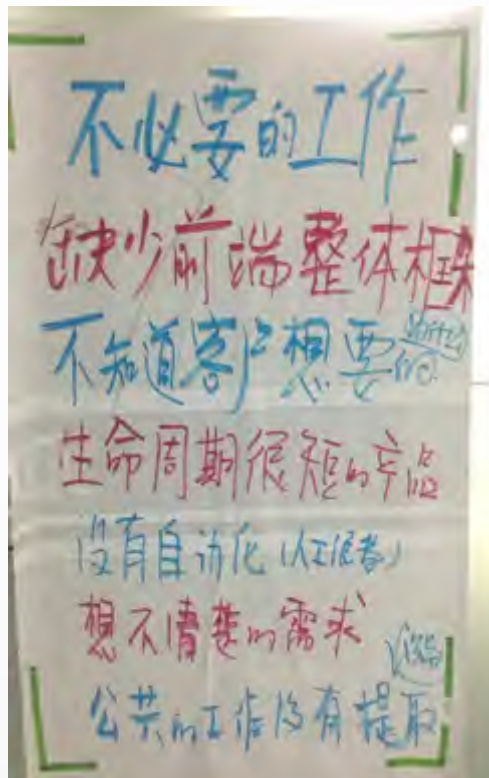 不必要的工作
缺少前端整体框架
不知道客户想要
生命周期很短的产品
没有自动化（人工
想不清楚的需求
公共的工作没有提取